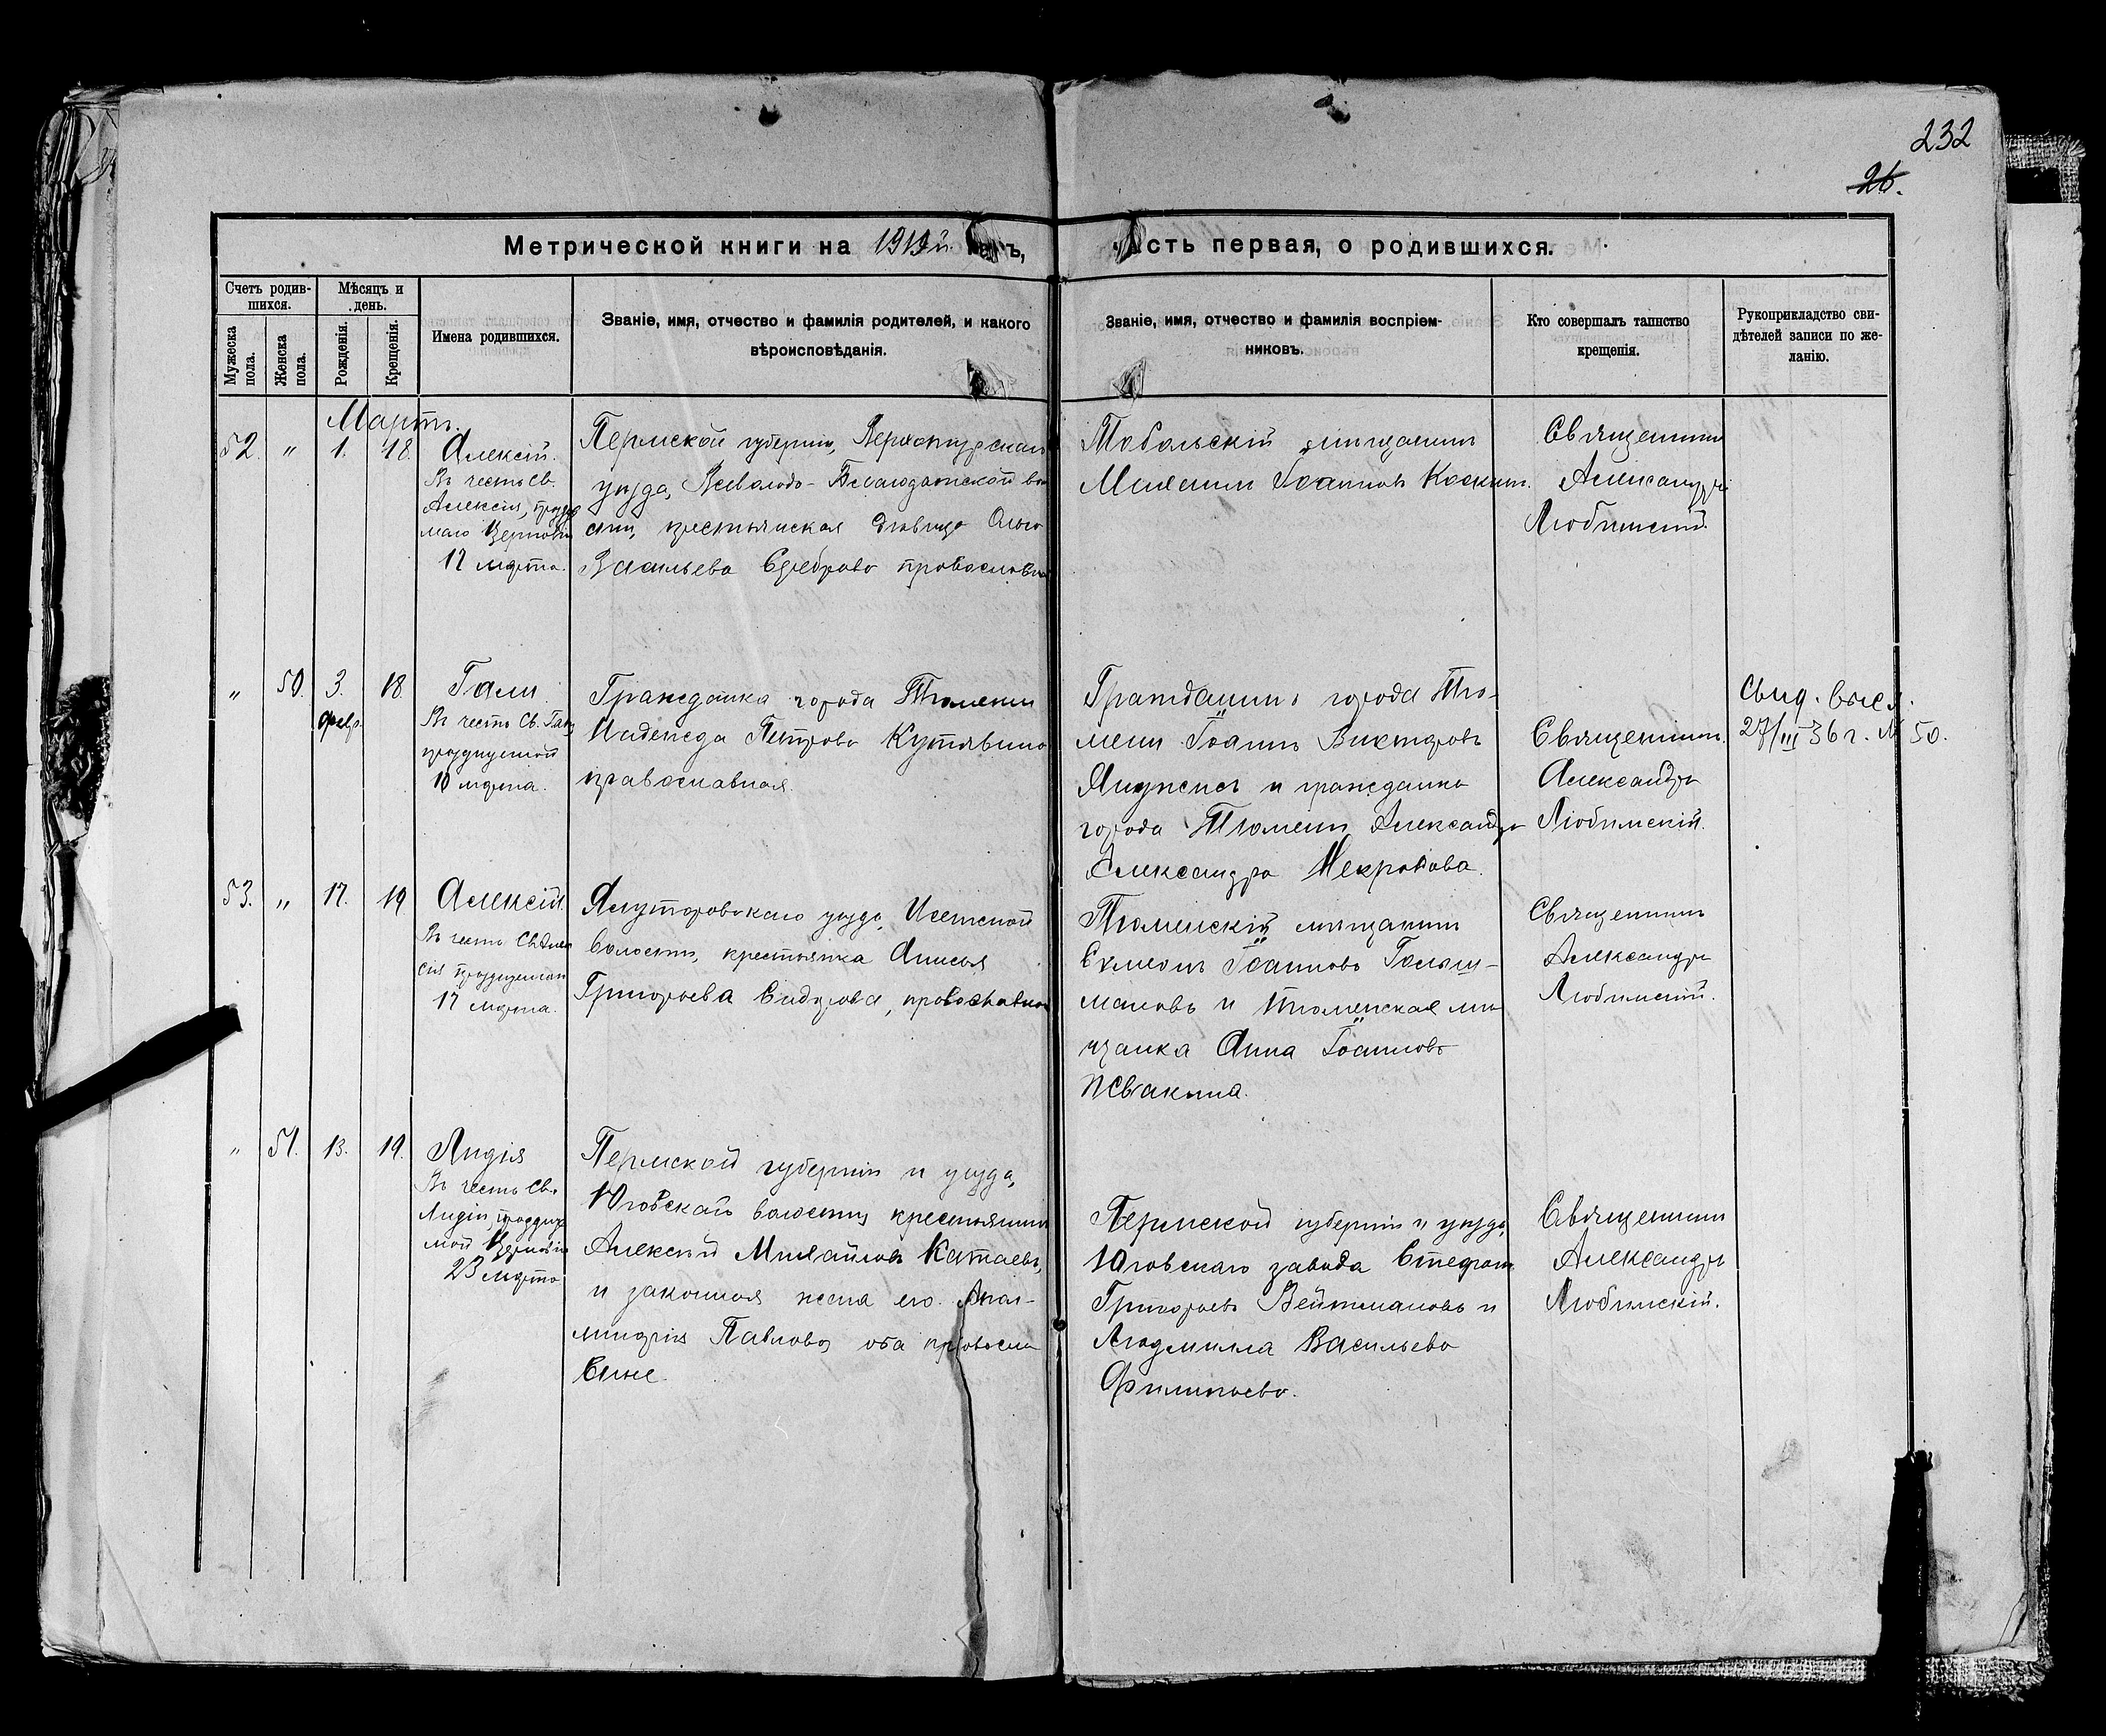 232
26.
Метрической книги на 1919й годъ, часть первая, о родившихся.
Счетъ родив-
шихся.
Мѣсяцъ и
день.
Мужеска
пола.
Женска
пола.
Рожденія.
Крещенія.
Имена родившихся.
Званіе, имя, отчество и фамилія родителей, и какого
вѣроисповѣданія.
Званіе, имя, отчество и фамилія воспріем-
никовъ.
Кто совершалъ таинство
крещенія.
Рукоприкладство сви-
дѣтелей записи по же-
ланію.
Мартъ.
52. " 1. 18.
Алексій.
Въ честь Св.
Алексія, праздуе
маго Церковію
17 марта.
Пермской губерніи, Верхотурскаго
уѣзда, Всеволодо-Благодатской во
сти, крестьянская дѣвица Ольга
Васильева Среброва православная
Тобольскій мѣщанинъ
Михаилъ Іоанновъ
Священникъ
Александръ
Любимскій.
" 50. 3. 18.
февр.
Въ честь Св.
празднуемой
10 марта.
Гражданка города Тюмени
Надежда Петрова Кутявина
православная.
Гражданинъ города Тю-
мени Іоаннъ Викторовъ
и гражданка
города Тюмени Александра
Александрова
Священникъ
Александръ
Любимскій.
Свид. высл.
27/III 36 г. № 50.
53. " 17. 19
Алексій.
Въ честь Св. Алек
сія празднуемаго
17 марта.
Ялуторовскаго уѣзда, Исетской
волости, крестьянка Анисья
Григорьева Сидорова, православная
Тюменскій мѣщанинъ
Симеонъ Іоанновъ Голыш-
мановъ и Тюменская мѣ
щанка Анна Іоаннова
Священникъ
Александръ
Любимскій.
" 51. 13. 19.
Лидія
Въ честь Св.
Лидіи, праздну
мой Церковію
23 марта
Пермской губерніи и уѣзда,
Юговской волости, крестьянинъ
Алексій Михайловъ Катаевъ,
и законная жена его
Павлова, оба правосла
вные.
Пермской губерніи и уѣзда,
Юговскаго завода Стефанъ
Григорьевъ Вейтмановъ и
Людмилла Васильева
Филипьева.
Священникъ
Александръ
Любимскій.